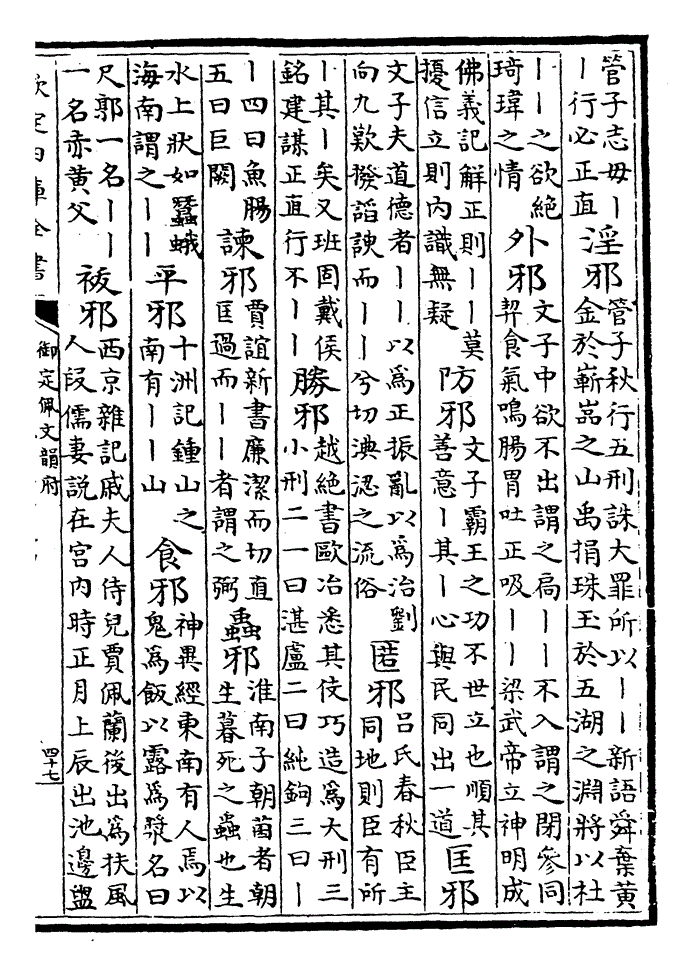 管子志毋｜
｜行必正直
淫邪
管子秋行五刑誅大罪所以｜｜新語舜棄黄
金於嶄嵓之山禹捐珠玉於五湖之淵將以杜
｜｜之欲絶
琦瑋之情
外邪
文子中欲不出謂之扃｜｜不入謂之閉參同
契食氣鳴腸胃吐正吸｜｜梁武帝立神明成
佛義記解正則｜｜莫
擾信立則内識無疑
防邪
文子霸王之功不世立也順其
善意｜其｜心與民同出一道
匡邪
文子夫道德者｜｜以為正振亂以為治劉
向九歎撥謟諛而｜｜兮切淟涊之流俗
匿邪
吕氏春秋臣主
同地則臣有所
｜其｜矣又班固戴侯
銘建謀正直行不｜｜
勝邪
越絶書歐冶悉其伎巧造為大刑三
小刑二一曰湛盧二曰純鉤三曰｜
｜四曰魚腸
五曰巨闕
諫邪
賈誼新書廉潔而切直
匡過而｜｜者謂之弼
蟲邪
淮南子朝菌者朝
生暮死之蟲也生
水上狀如蠶蛾
海南謂之｜｜
平邪
十洲記鍾山之
南有｜｜山
食邪
神異經東南有人焉以
鬼為飯以露為漿名曰
尺郭一名｜｜
一名赤黄父
祓邪
西京雜記戚夫人侍兒賈佩蘭後出為扶風
人段儒妻説在宫内時正月上辰出池邊盥
欽定四庫全書
御定佩文韻府
四十七